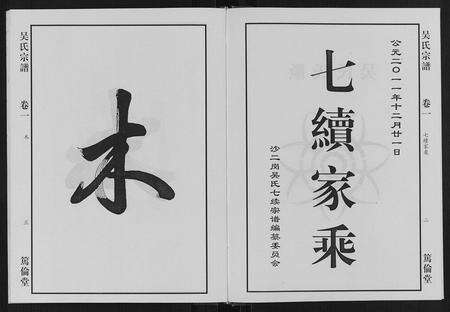 吴氏宗譜
卷一
七續家乘
二
篤倫堂
公元二〇一一年十二月廿一日
七續家乘
沙二岗吴氏七续宗谱编纂委员会
木
吴氏宗譜
卷一
木
三
篤倫堂